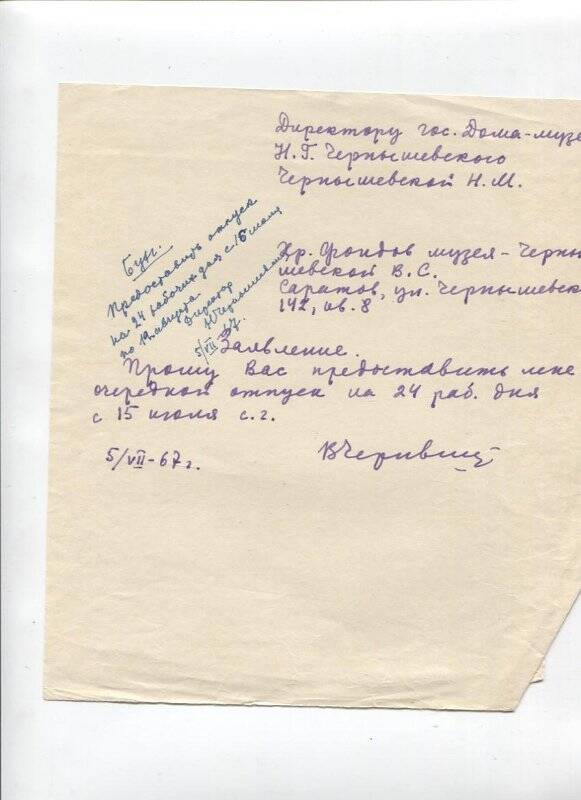 Директору гос. Дома-музе
Н.Г. Чернышевского
Чернышевской Н.М.
Хр. Фондов музея - Черны
шевской В.С.
Саратов, ул. Чернышевск
142, кв. 8
Бух.
Предоставить отпуск
на 24 рабочих дня с 15 июля
по 12 августа
Директор
НЧернышевская
5/VII 67.
Заявление.
Прошу Вас предоставить мне
очередной отпуск на 24 раб. дня
с 15 июля с.г.
5/VII-67г.